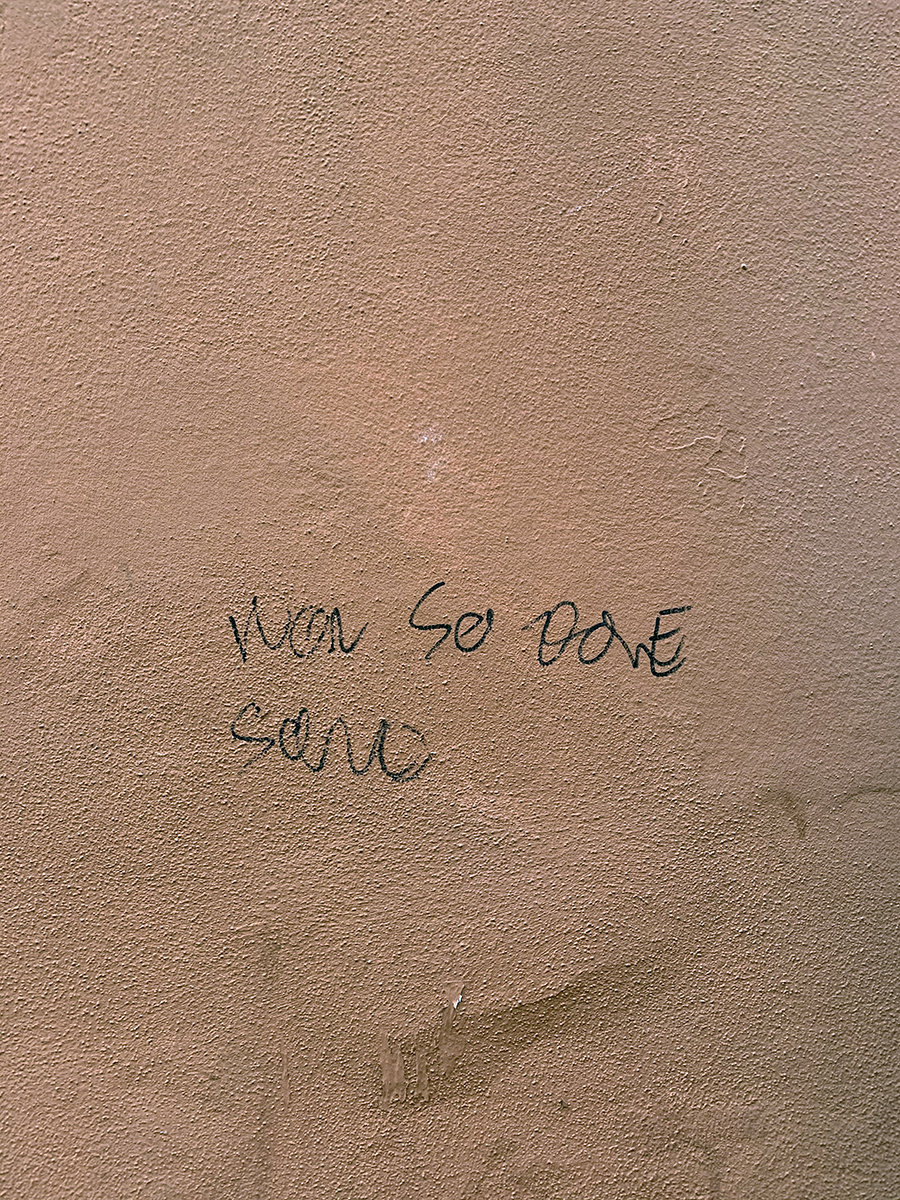 NON SO DOVE
SONO